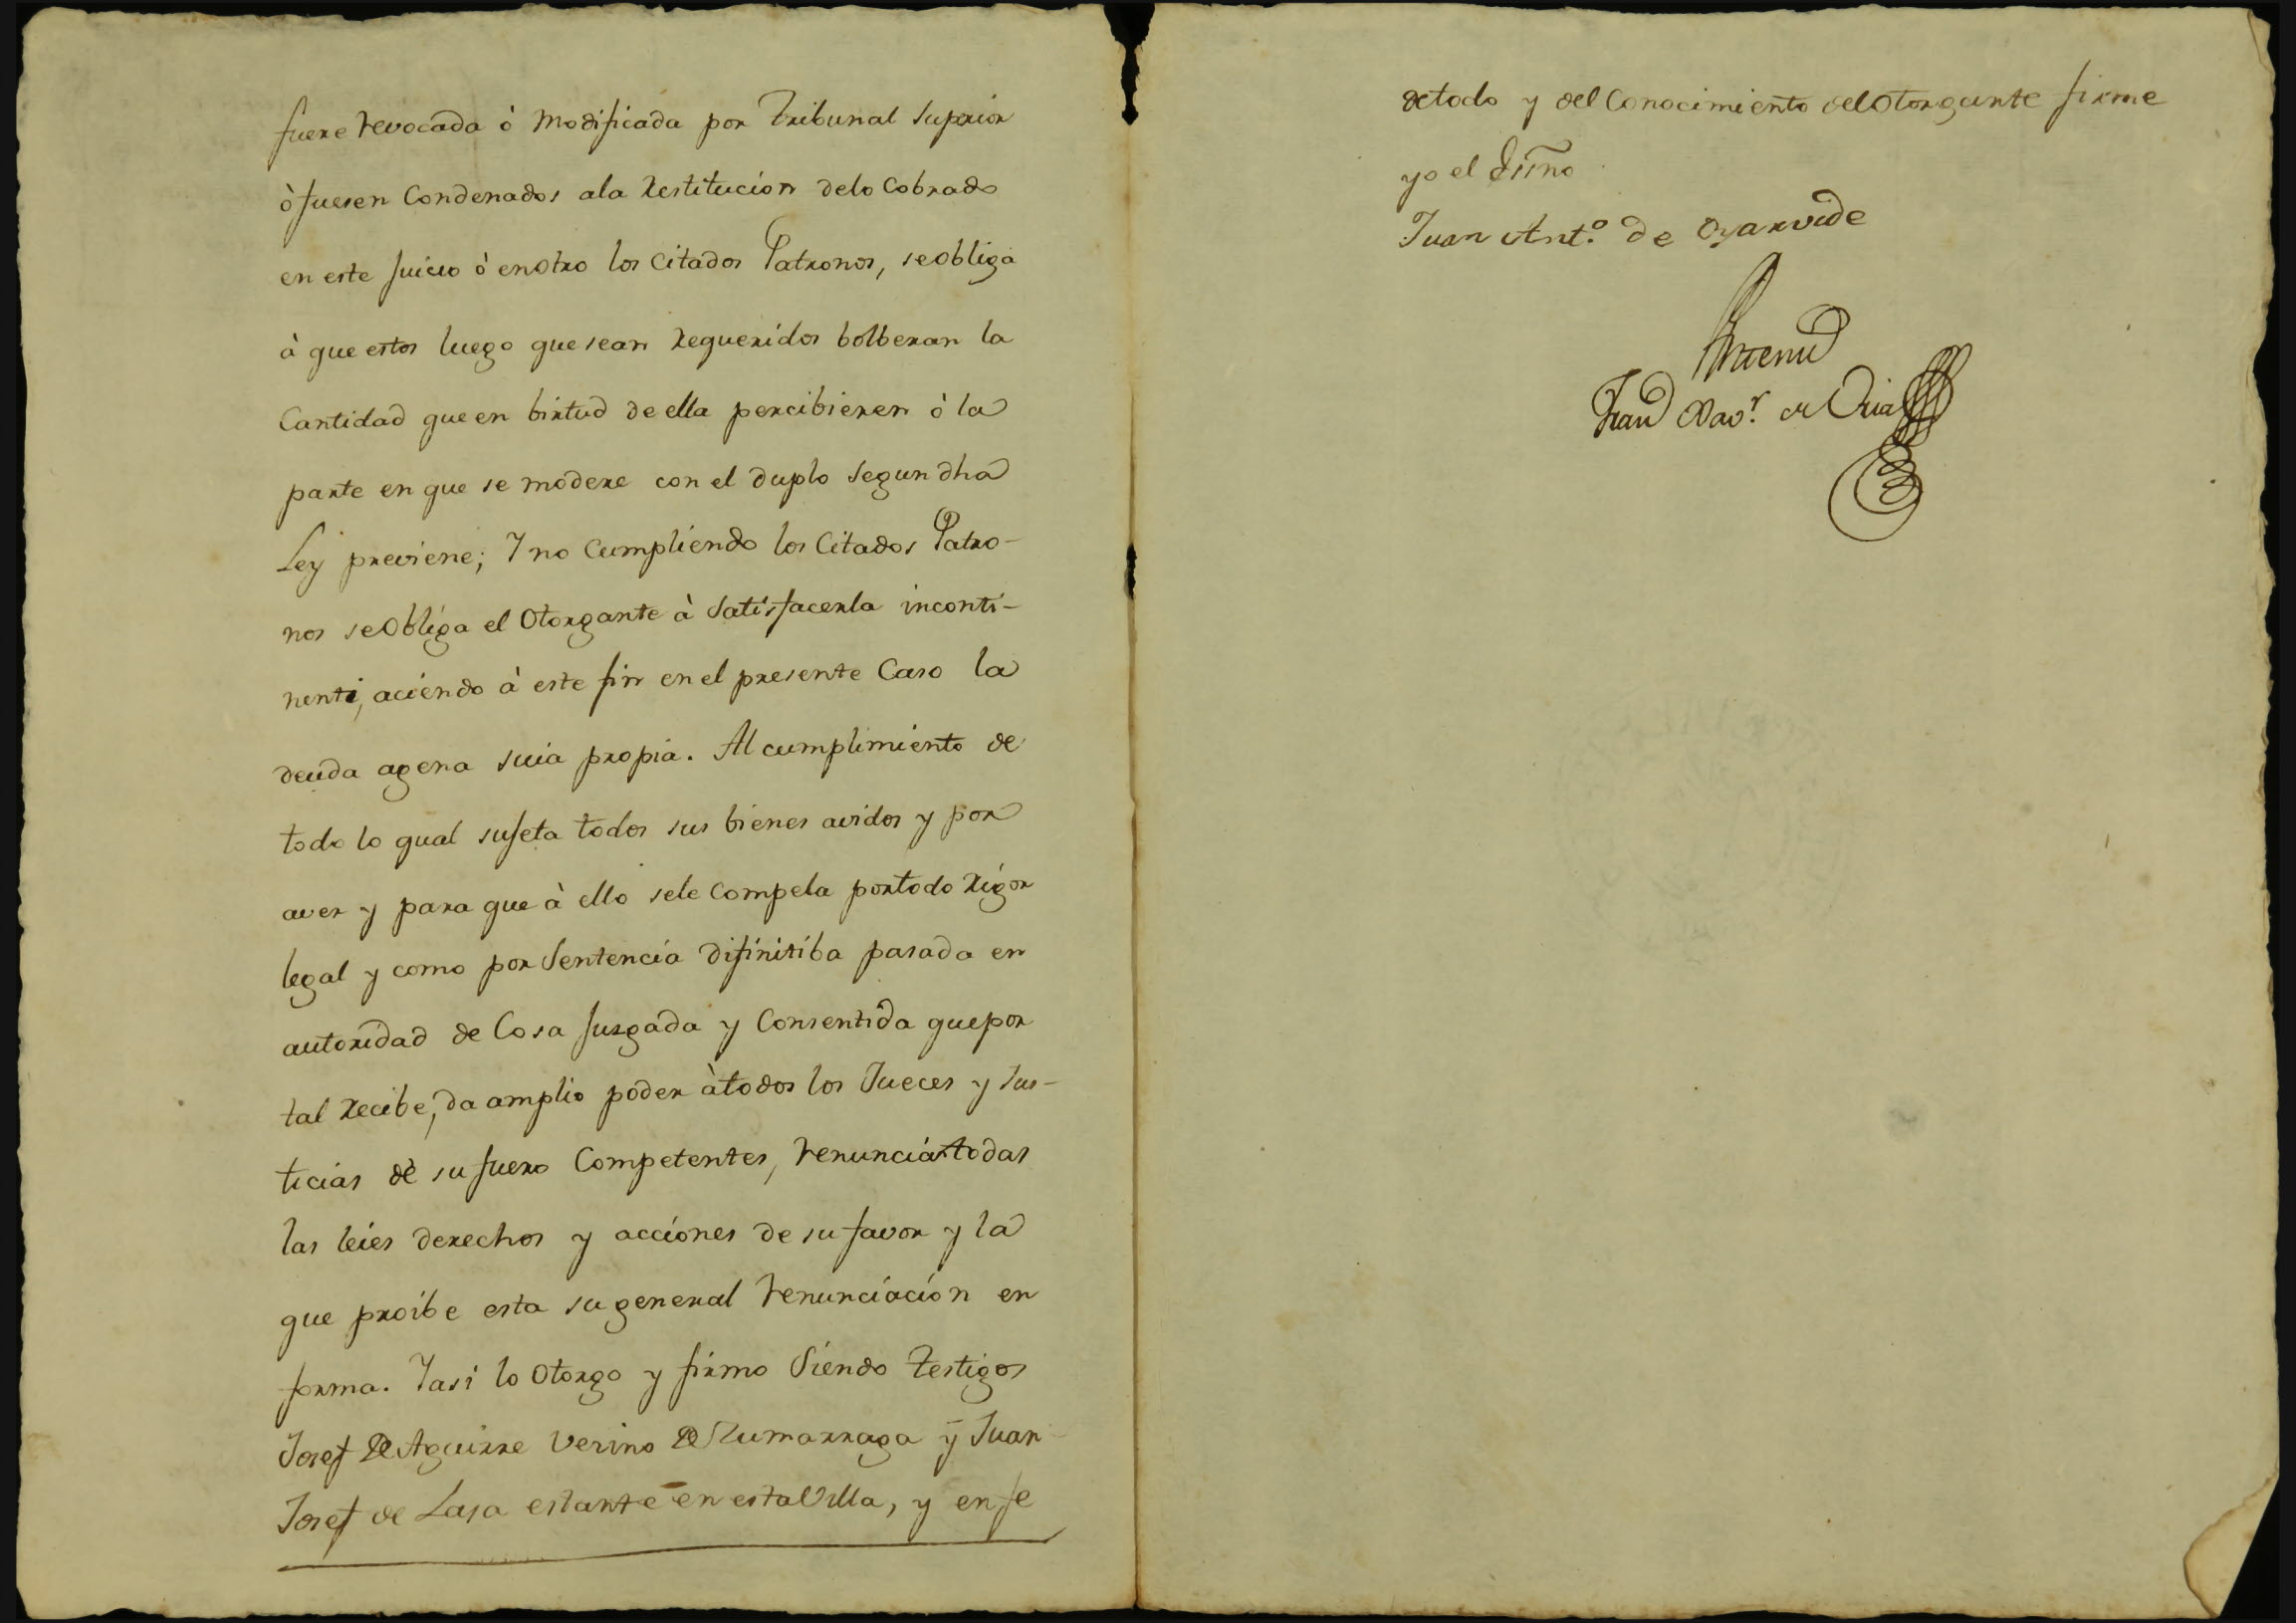 fuere revocada ò Modificada por Tribunal Superior
ò fuesen Condenados ala Restitucion delo Cobrado
en este Juicio ò enotro los Citados Patronos, se obliga
à que estos luego que sean Requeridos bolberan la
Cantidad que en birtud de ella percibieren ò la
parte en que se modere con el duplo segun dha
Ley previene; Y no Cumpliendo los Citados Patro-
nos se Obliga el Otorgante à Satisfacerla inconti-
nenti, aciendo à este fin en el presente Caso la
deuda agena suia propia. Al cumplimiento de
todo lo qual sujeta todos sus bienes avidos y por
aver y para que à ello sele Compela portodo Rigor
legal y como por Sentencia difinitiba pasada en
autoridad de Cosa Juzgada y Consentida que por
tal Recibe, da amplio poder àtodos los Jueces y Jus-
ticias de su fuero Competentes, renuncia todas
las leies derechos y acciones de su favor y la
que proibe esta su general renunciacion en
forma. Y asi lo Otorgo y firmo Siendo Testigos
Josef De Aguirre Vecino De Zumarraga y Juan
Josef de Lasa estante en esta Villa, y en fe
de todo y del Conocimiento del Otorgante firme
yo el Ssno
Juan Ant.º de Oyarvide
Antemi
Fran Xav.r de Oria